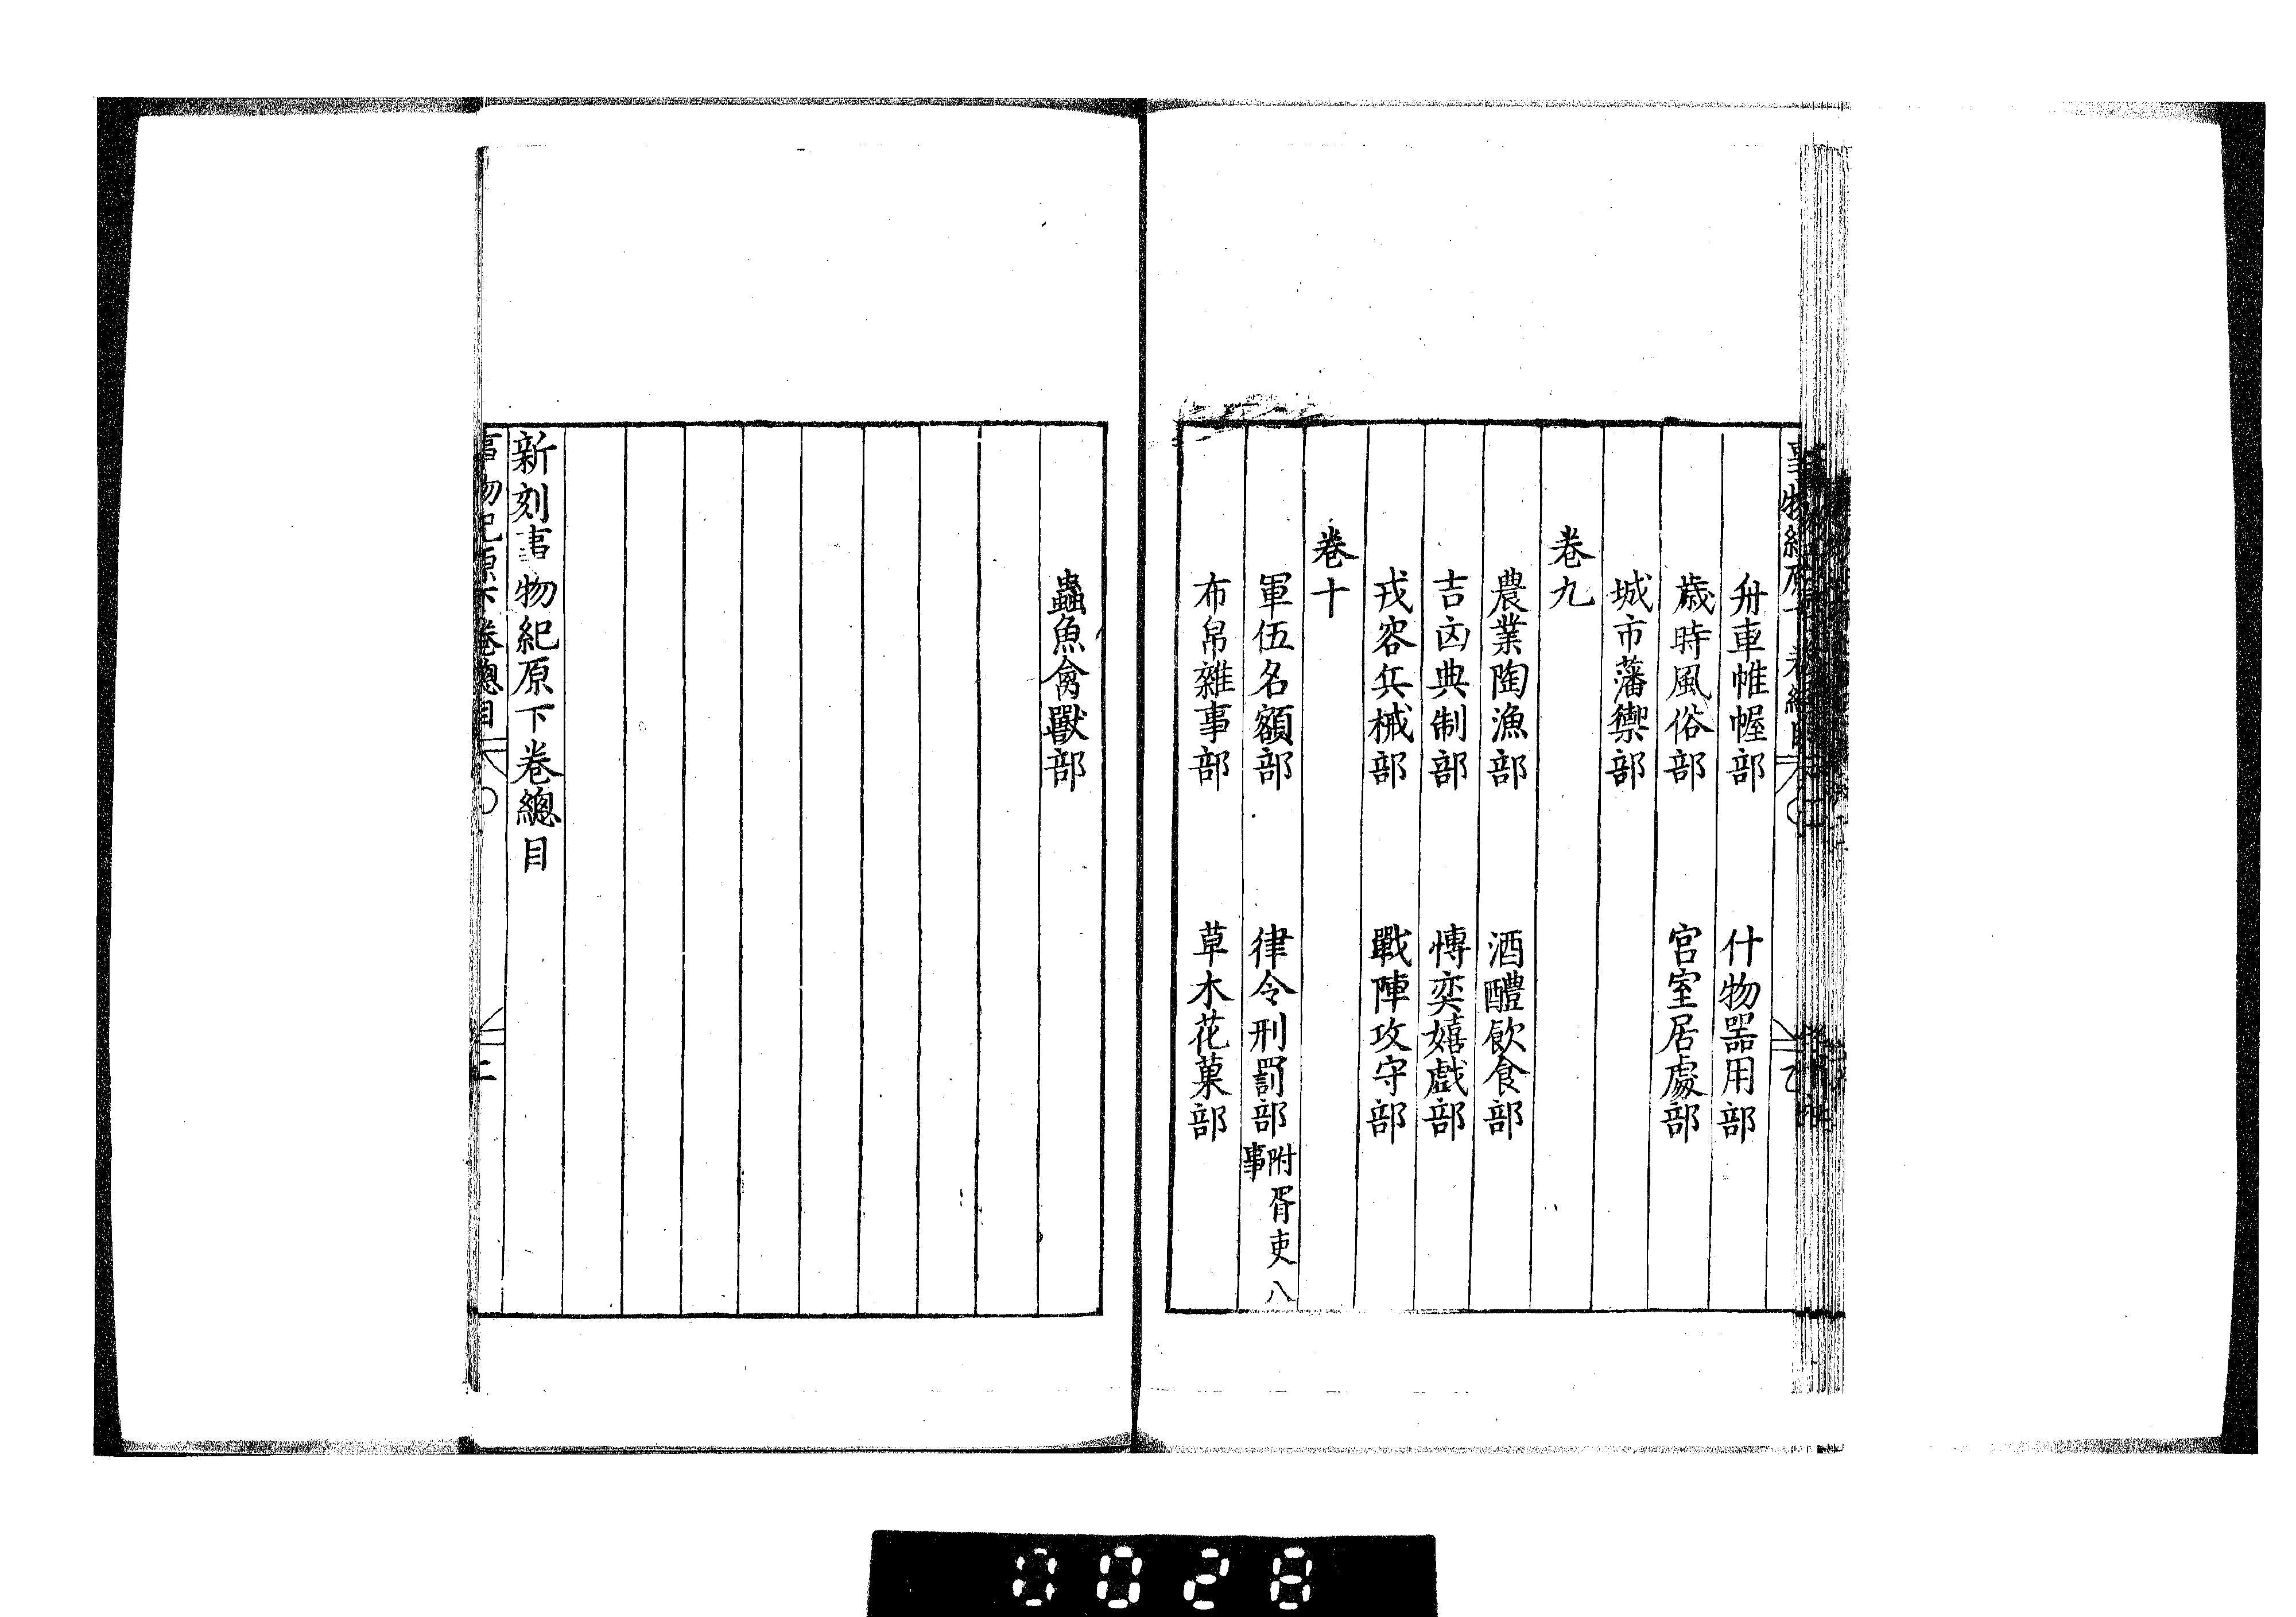 舟車帷幄部　什物器用部
歳時風俗部　宫室居處部
城市藩禦部
卷九
農業陶漁部　酒醴飲食部
吉凶典制部　博奕嬉戲部
戎容兵械部　戰陣攻守部
卷十
軍伍名額部　律令刑罰部附胥吏八事
布帛雜事部　草木花菓部
蟲魚禽獸部
新刻事物紀原下卷總目
事物紀原下卷總目　二
0028